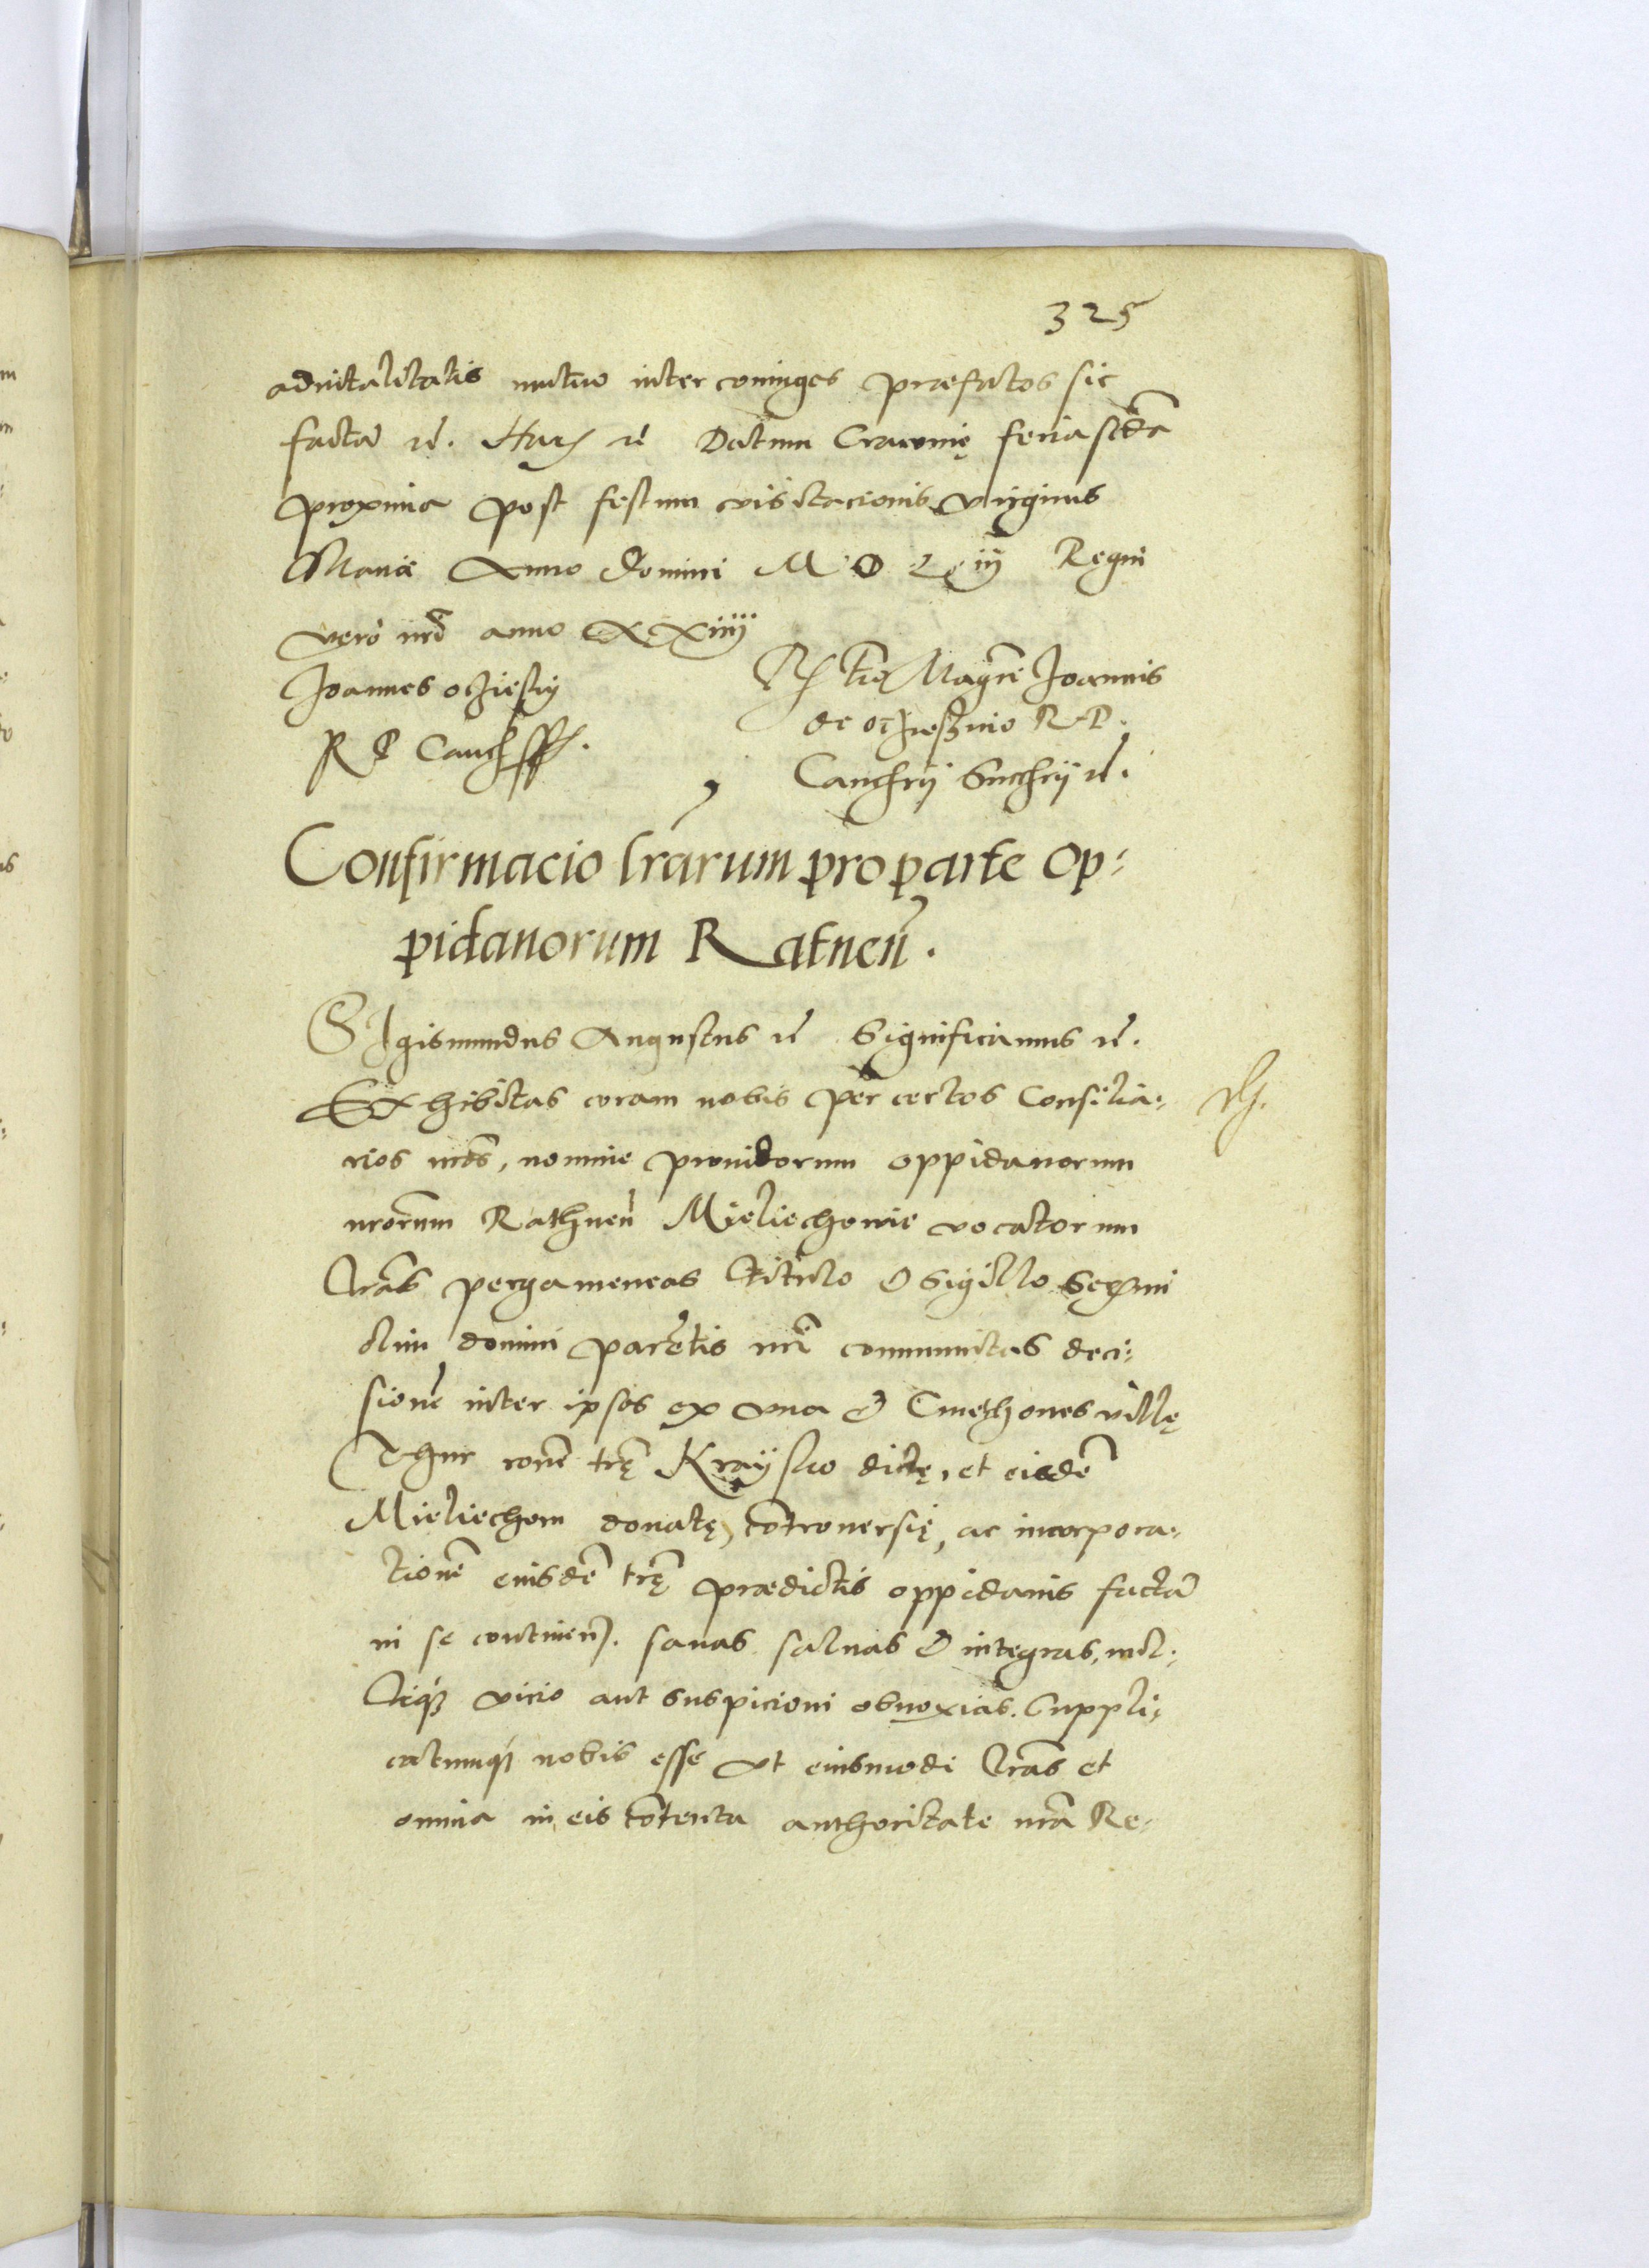 325
advitalitatis mutuo inter coniuges præfatos sic
factā etc. Har. etc. Datum Cracovię feria scďa
proxima post festum visitacionis Virginis
Mariæ Anno Domini M D L iij Regni
vero nrō anno XXiiij
Joannes ocziesky
R P Canc.
Rtio Magci Joannis
de oczieszino R. P.
Cancrij Succrij etc.
Confirmacio lrārum pro parte op-
pidanorum Ratneñ.
SIgismundus Augustus etc. Significamus etc.
Exhibitas coram nobis per certos Consilia-
rios nrōs, nomine providorum oppidanorum
nrōrum Rathneñ Mieliechowie vocatorum
Lrās pergameneas titulo & sigillo Serēmi
olim domini parētis nrī communitas deci-
sionē inter ipsos ex una & Cmethones villę
Thur rōne trę Kraysko dictę, et eisdē
Mieliechom donatę, cōtroversię, ac incorpora-
tionē eiusdē trę prædictis oppidanis factā
in se continen. sanas salvas & integras, nul-
liqз vicio aut suspicioni obnoxias. Suppli-
catumqз nobis esse ut eiusmodi Lrās et
omnia in eis cōtenta authoritate nrā Re-